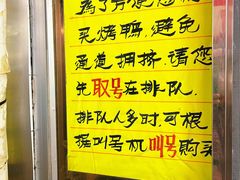 为了方便您
买烤鸭,避免
通道拥挤,请您
先取号在排队.
排队人多时,可根
据叫号机叫号购买